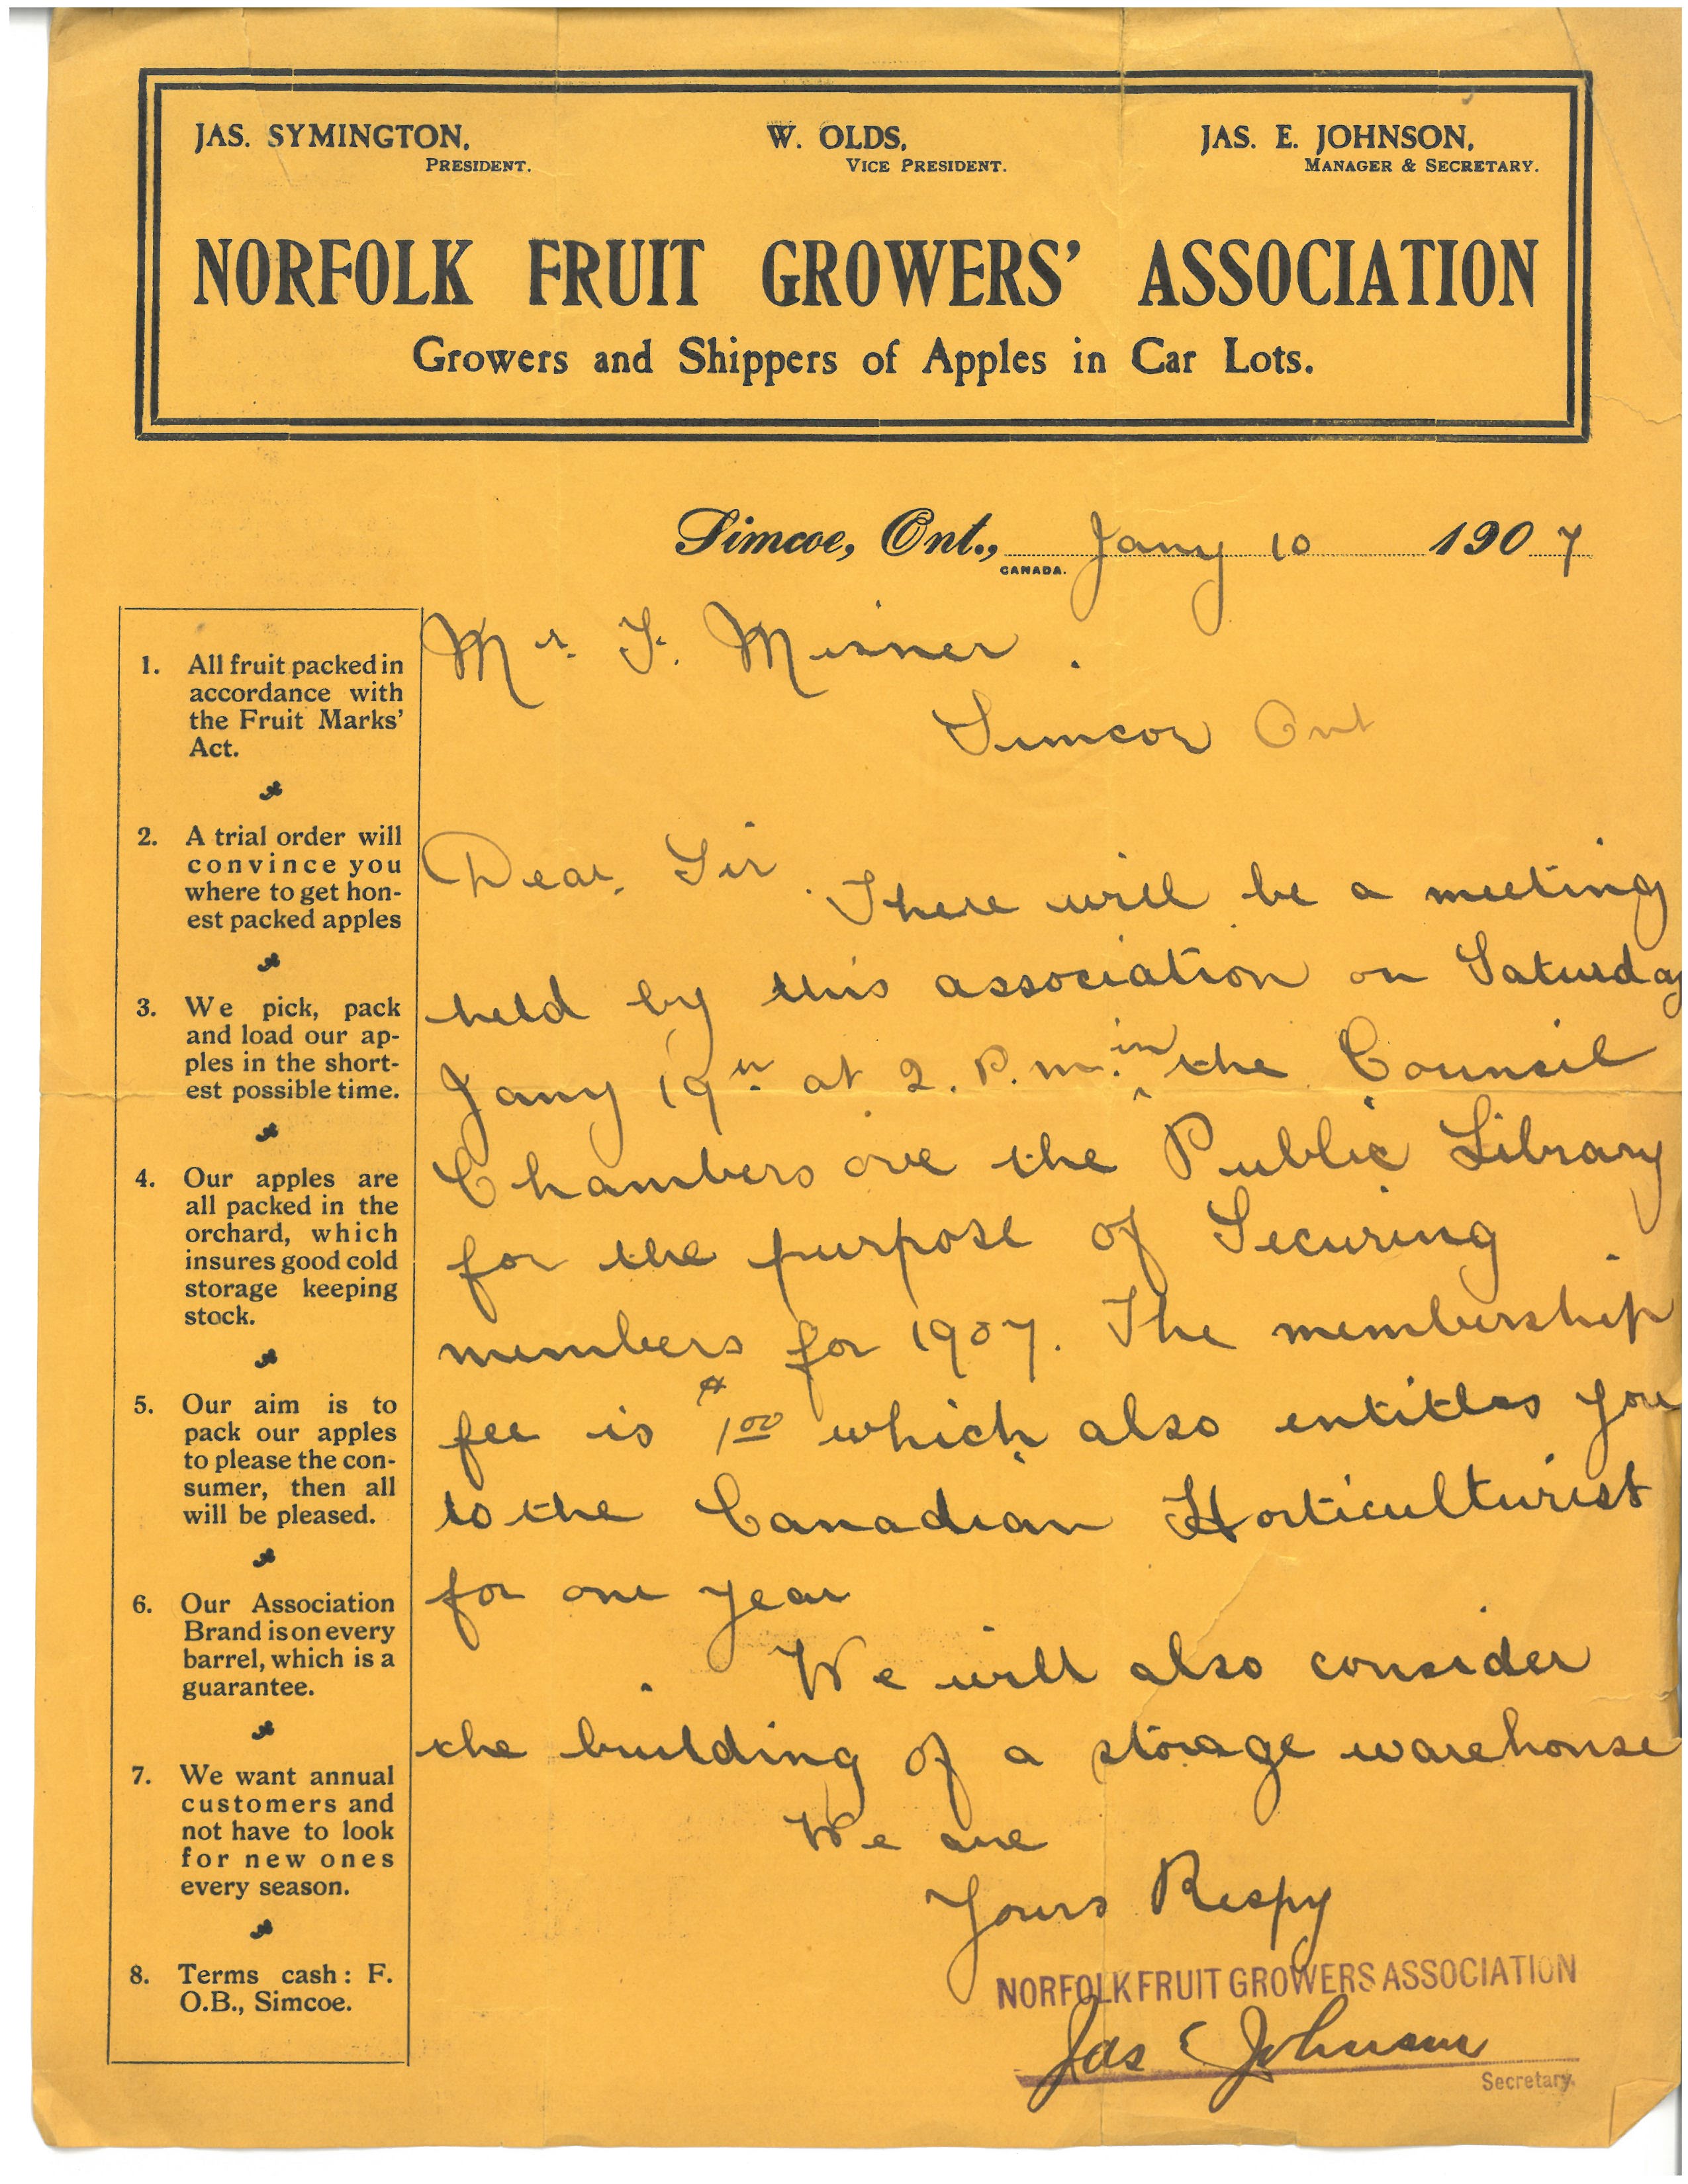 JAS. SYMINGTON,
PRESIDENT.
W. OLDS,
VICE PRESIDENT.
JAS. E. JOHNSON,
MANAGER & SECRETARY.
NORFOLK FRUIT GROWERS' ASSOCIATION
Growers and Shippers of Apples in Car Lots.
Simcoe, Ont., Jany 10 1907
CANADA.
1. All fruit packed in
accordance with
the Fruit Marks'
Act.
2. A trial order will
convince you
where to get hon-
est packed apples
3. We pick, pack
and load our ap-
ples in the short-
est possible time.
4. Our apples are
all packed in the
orchard, which
insures good cold
storage keeping
stock.
5. Our aim is to
pack our apples
to please the con-
sumer, then all
will be pleased.
6. Our Association
Brand is on every
barrel, which is a
guarantee.
7. We want annual
customers and
not have to look
for new ones
every season.
8. Terms cash: F.
O.B., Simcoe.
Mr. F. Misner.
Simcoe Ont
Dear Sir.
There will be a meeting
held by this association on Saturday
Jany 19th at 2. P.m. in the Council
Chambers ove the Public Library
for the purpose of Securing
members for 1907. The membership
fee is $1.00 which also entitles you
to the Canadian Horticulturist
for one year
We will also consider
the building of a storage warehouse
We are
Yours Respy
NORFOLK FRUIT GROWERS ASSOCIATION
Jas E Johnson
Secretary.